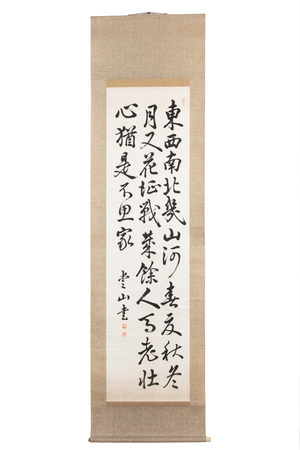 東西南北幾山河春夏秋冬
月又花征戰歳餘人馬老壮
心猶是不思家
山書